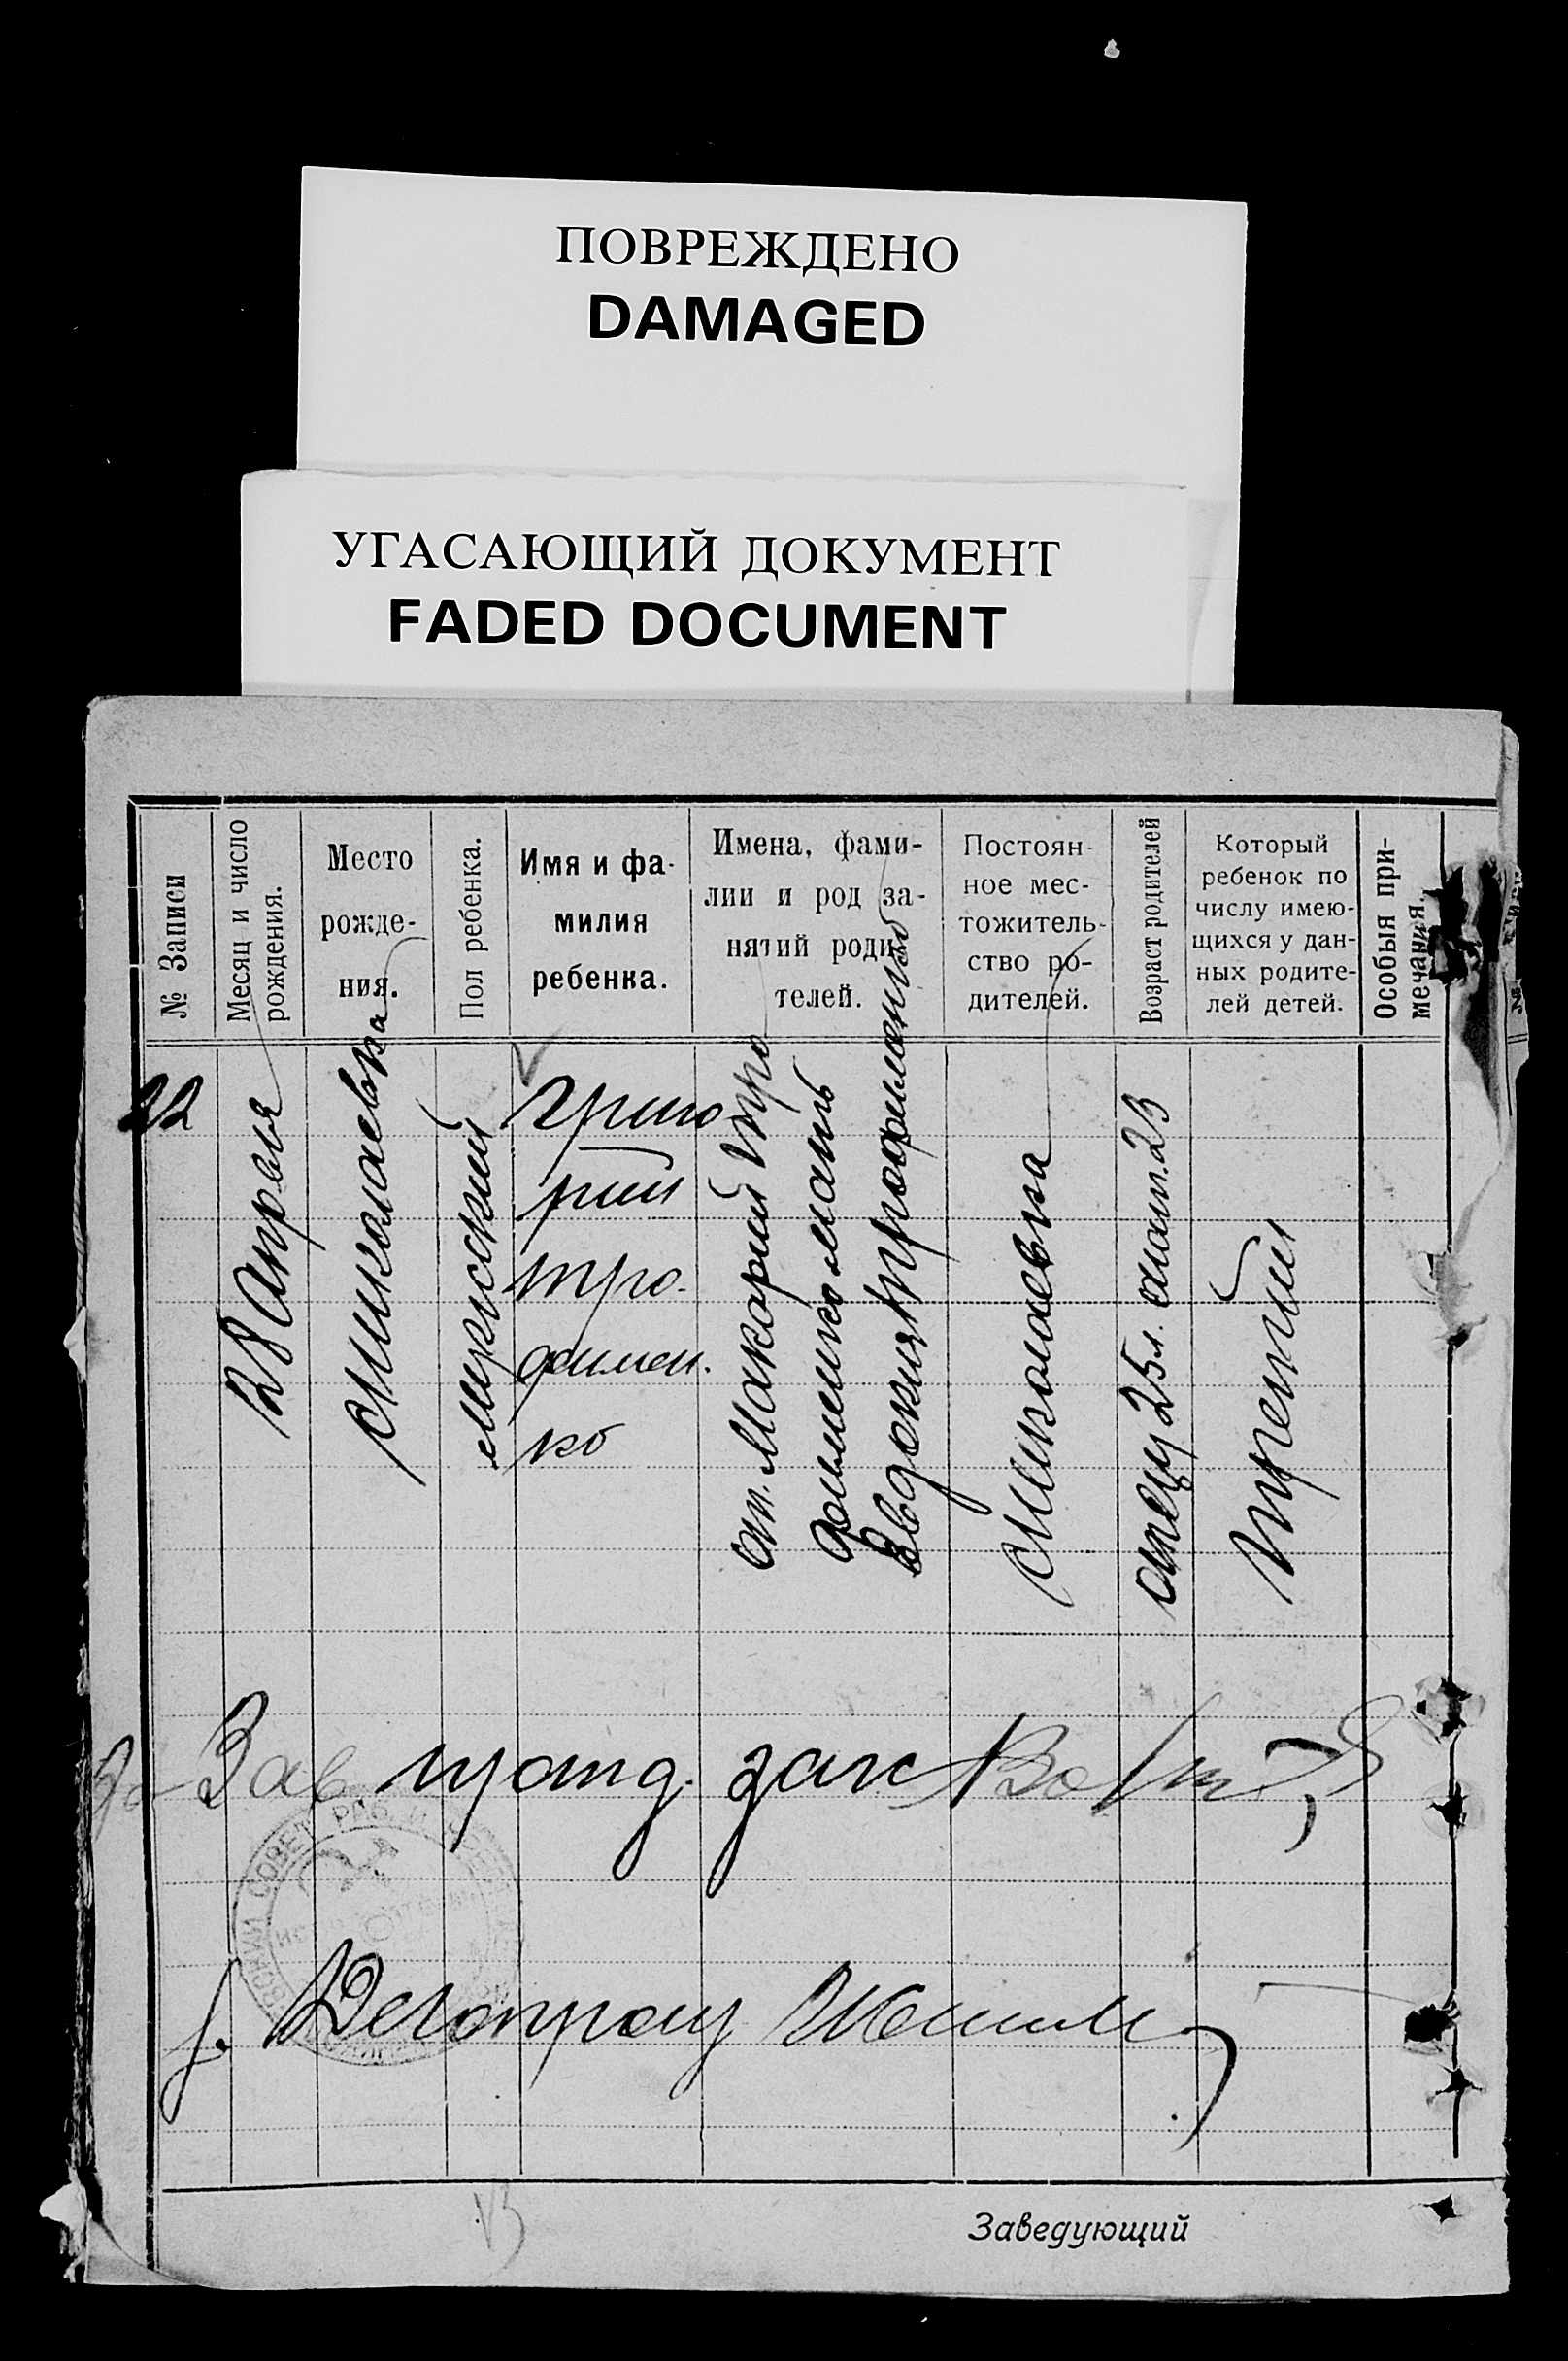 ПОВРЕЖДЕНО
DAMAGED
УГАСАЮЩИЙ ДОКУМЕНТ
FADED DOCUMENT
№ Записи
Месяц и число
рождения.
Место
рожде-
ния.
Пол ребенка.
Имя и фа-
милия
ребенка.
Имена, фами-
лии и род за-
нятий роди-
телей.
Постоян-
ное мес-
тожитель-
ство ро-
дителей.
Возраст родителей
Который
ребенок по
числу имею-
щихся у дан-
ных родите-
лей детей.
Особыя при-
мечания.
22
28 Апреля
Николаевка
мужской
Григо
рий
Тро-
фимен.
ко
от. Макарий Тро
фименко мать
Евдокия Трофименко
Николаевка
отец 25 л. мат. 23
третий
Зав. загс
Делопроиз
Заведующий